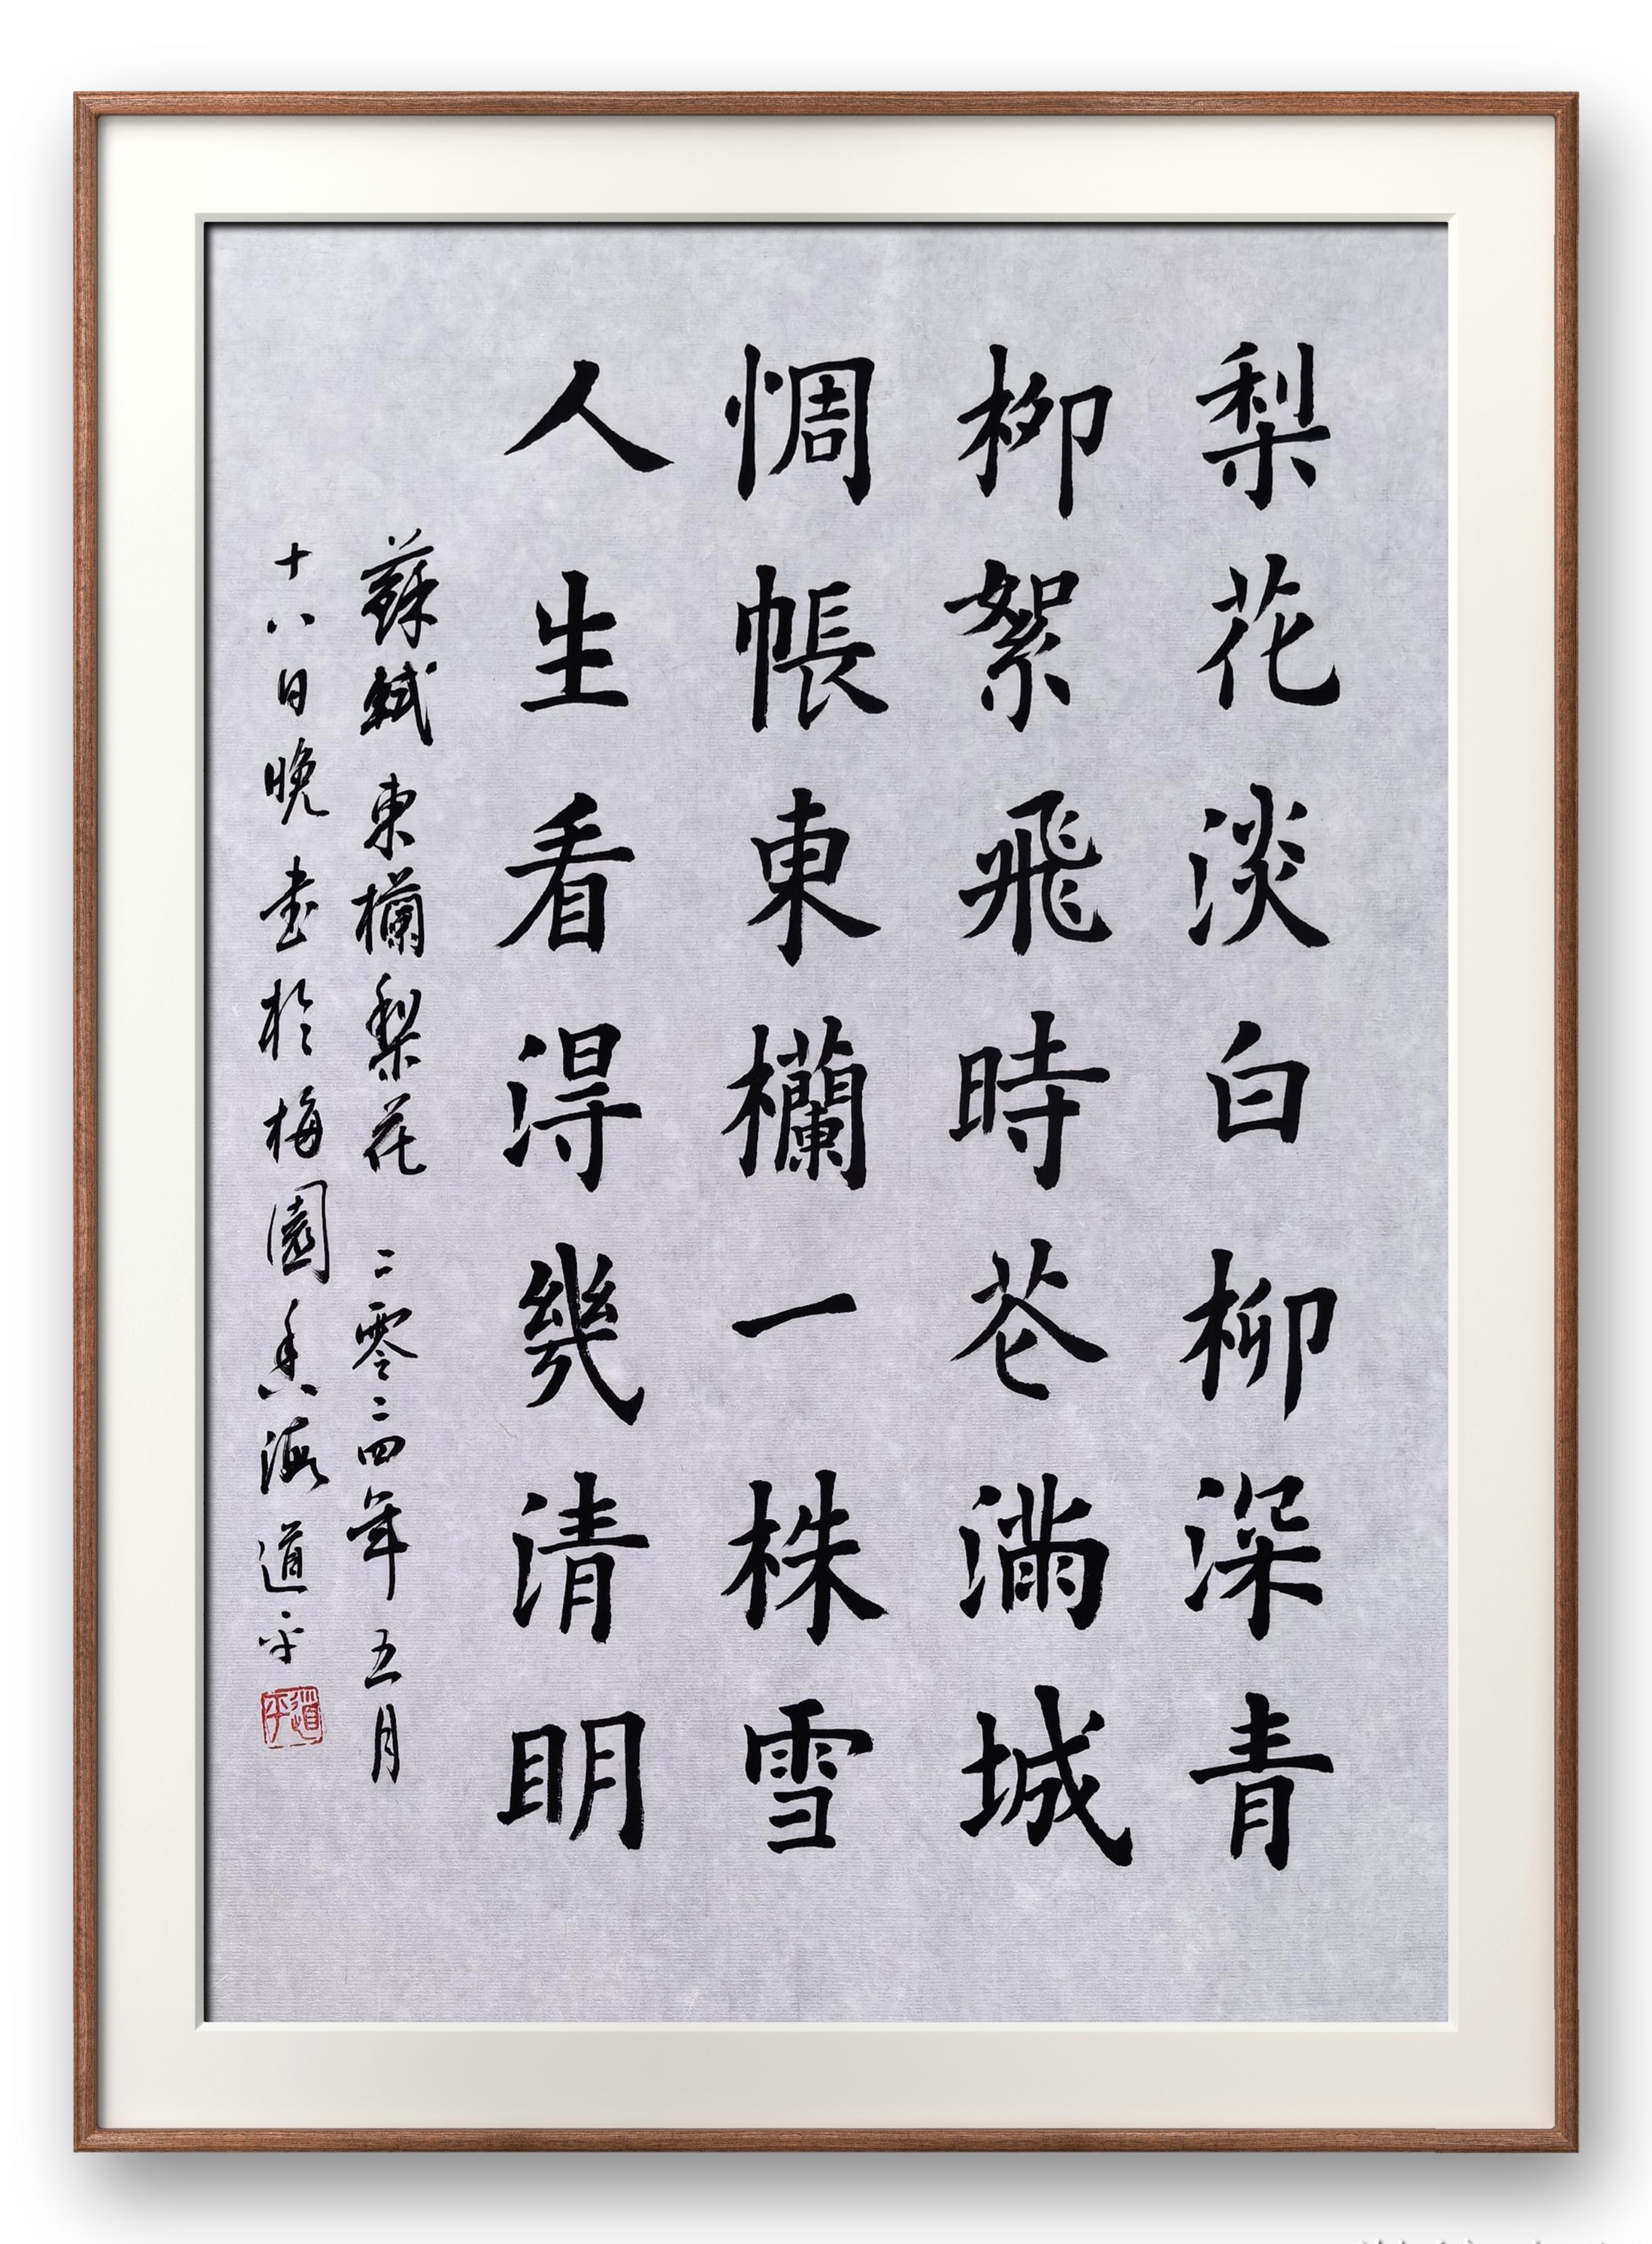 梨花淡白柳深青
柳絮飛時花滿城
惆悵東欄一株雪
人生看得幾清明
蘇軾東欄梨花 二零二四年五月
十八日晚書於梅園香海道平
道平